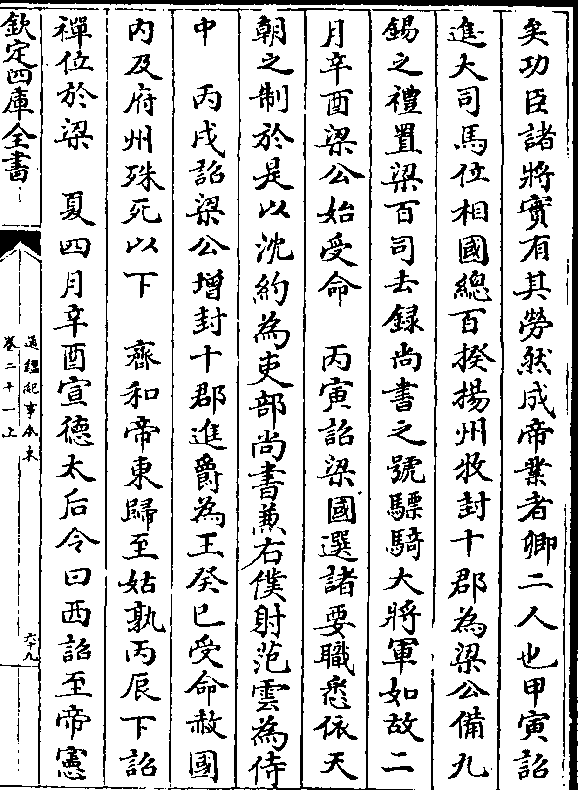 矣功臣諸將實有其勞然成帝業者卿二人也甲寅詔
進大司馬位相國總百揆揚州牧封十郡為梁公備九
錫之禮置梁百司去録尚書之號驃騎大將軍如故二
月辛酉梁公始受命　丙寅詔梁國選諸要職悉依天
朝之制於是以沈約為吏部尚書兼右僕射范雲為侍
中　丙戌詔梁公增封十郡進爵為王癸巳受命赦國
内及府州殊死以下　齊和帝東歸至姑孰丙辰下詔
禪位於梁　夏四月辛酉宣德太后令曰西詔至帝憲
欽定四庫全書
通鑑紀事本末
卷二十一上
六十九